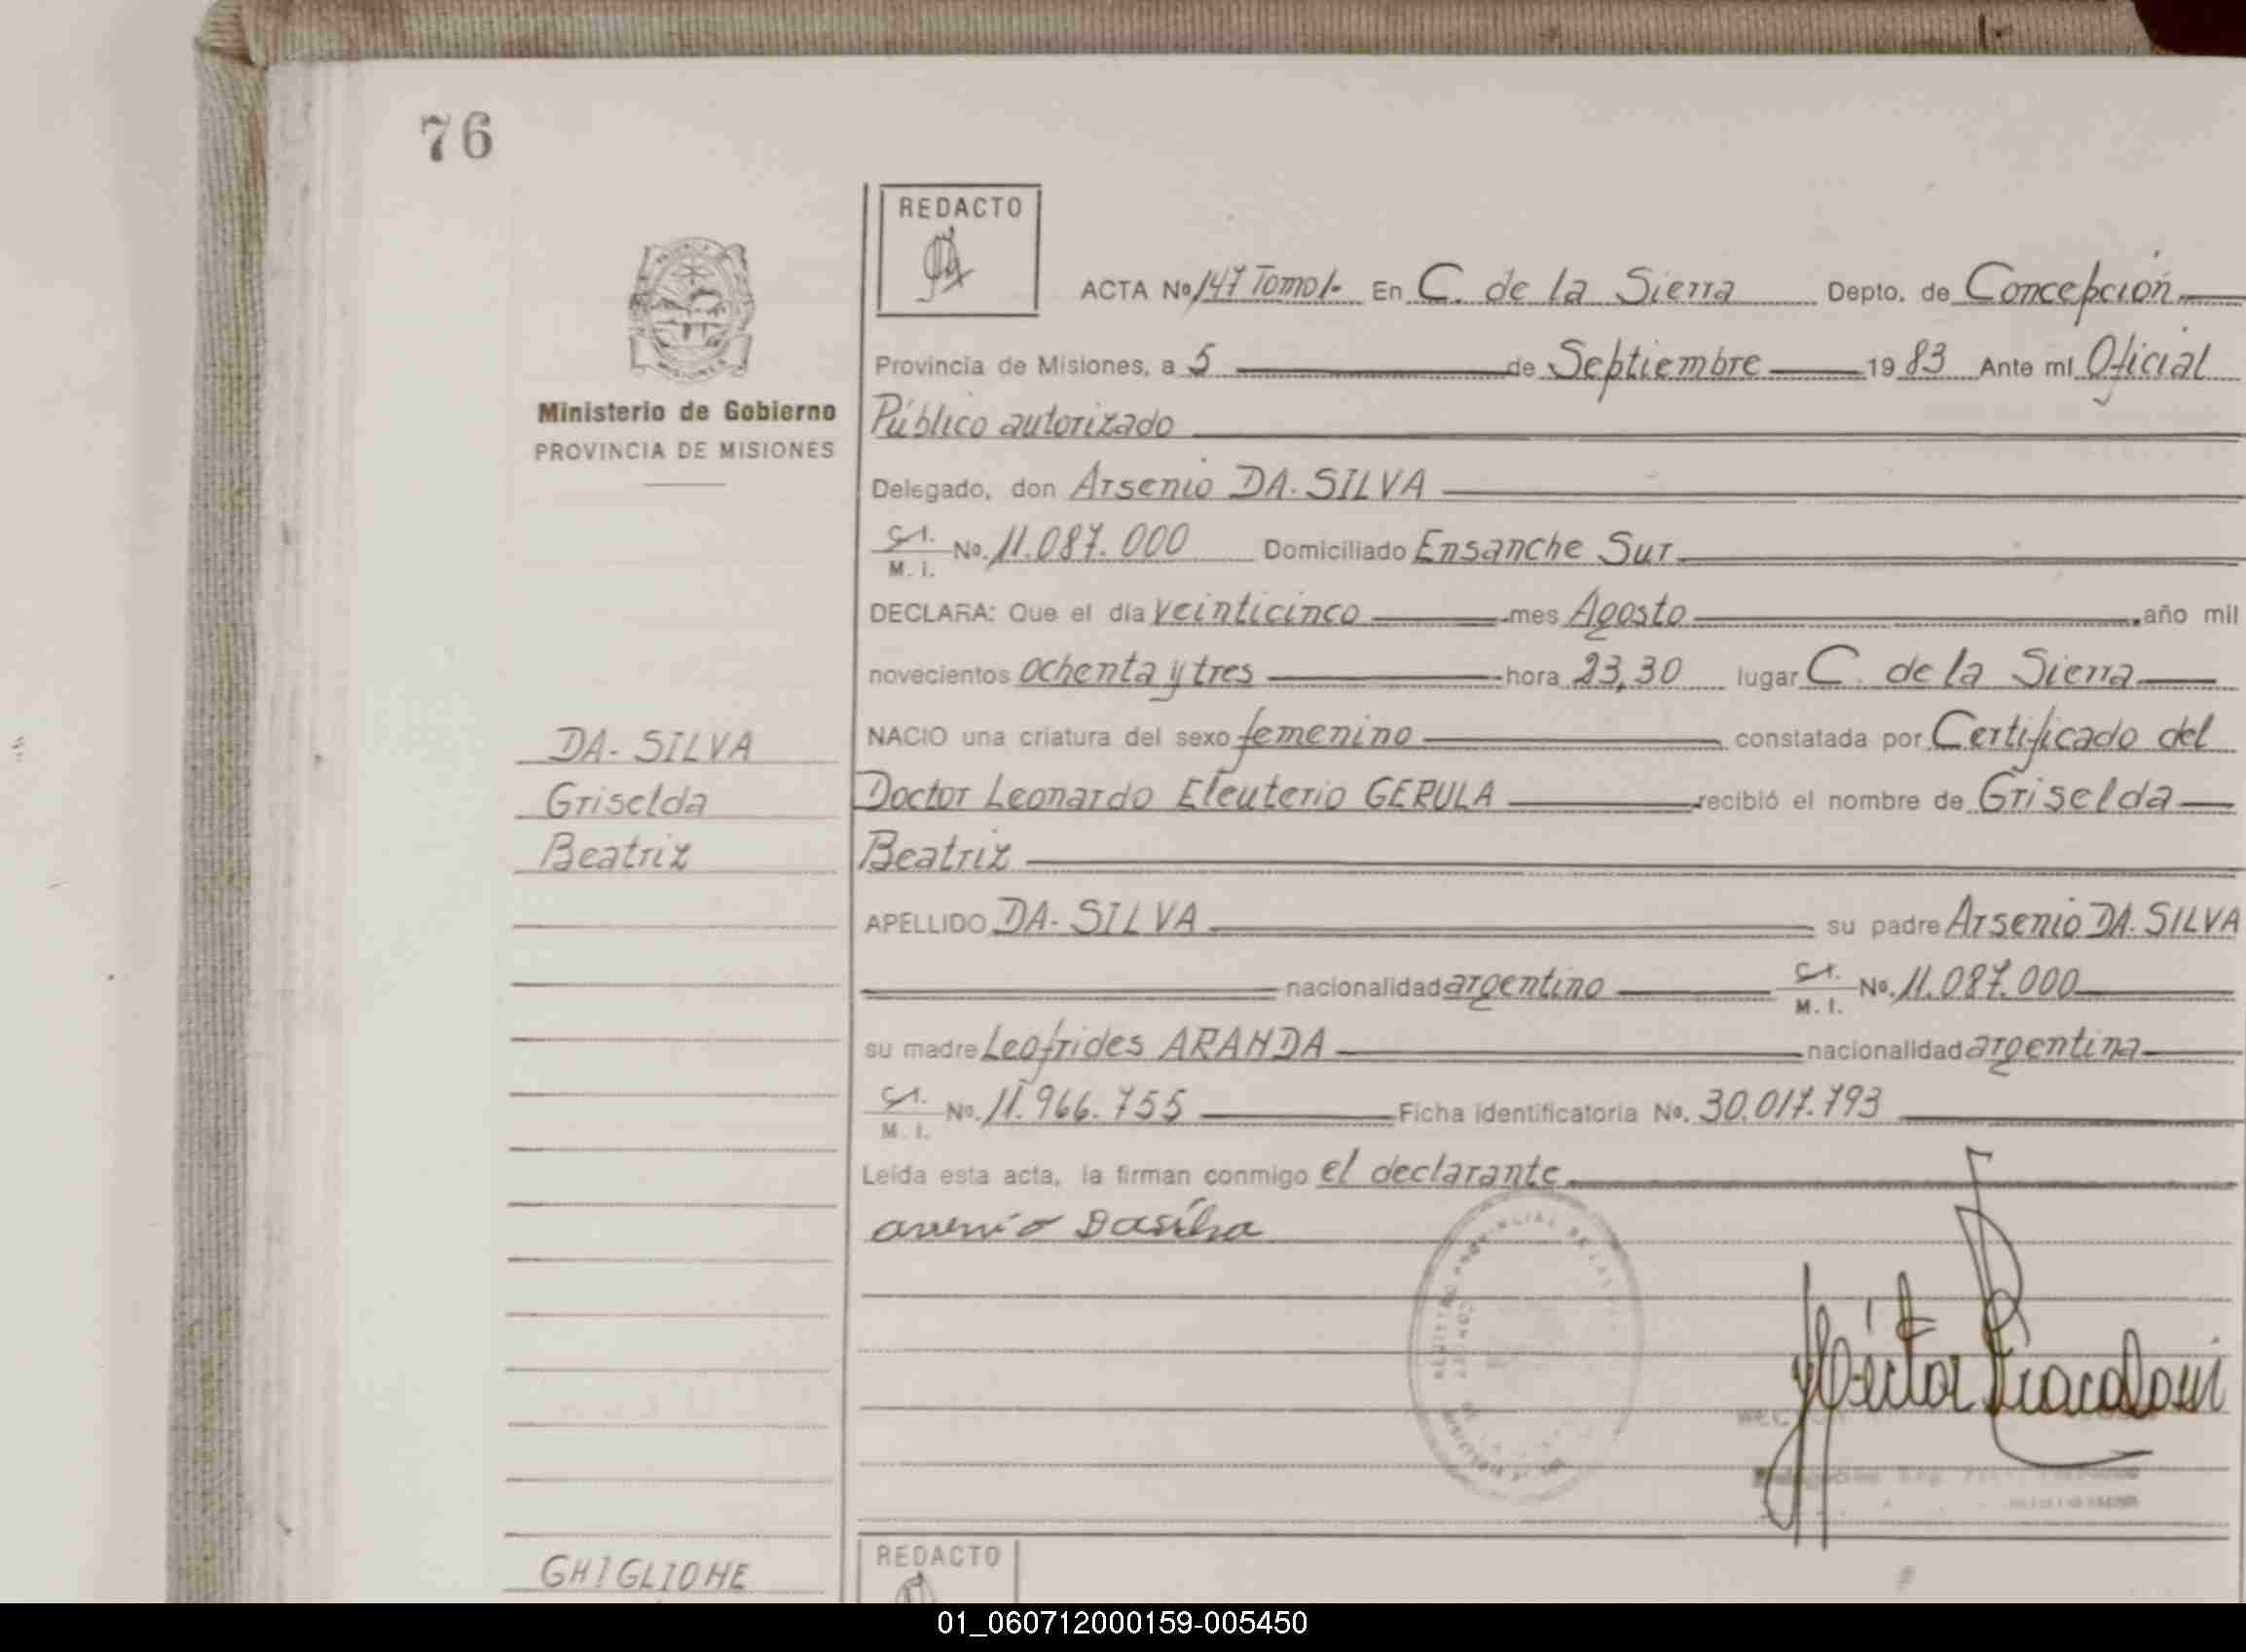 76
REDACTO
ACTA No 147 Tomo 1- En C. de la Sierra Depto. de Concepción
Provincia de Misiones, a 5 de Septiembre 1983 Ante mí Oficial
Ministerio de Gobierno
PROVINCIA DE MISIONES
Público autorizado
Delegado, don Arsenio DA. SILVA
C.I. M. I. No. 11.087.000 Domiciliado Ensanche Sur
DECLARA: Que el día veinticinco mes Agosto año mil
novecientos ochenta y tres hora 23,30 lugar C. de la Sierra
NACIO una criatura del sexo femenino constatada por Certificado del
DA- SILVA
Griselda
Beatriz
Doctor Leonardo Eleuterio GERULA recibió el nombre de Griselda
Beatriz
APELLIDO DA- SILVA su padre Arsenio DA. SILVA
nacionalidad argentino C.I. M. I. No. 11.087.000
su madre Leofrides ARANDA nacionalidad argentina
C.I. M. I. No. 11.966.755 Ficha identificatoria No. 30.017.793
Leída esta acta, la firman conmigo el declarante
REGISTRO PROVINCIAL DE LAS
GHIGLIONE
REDACTO
01_060712000159-005450